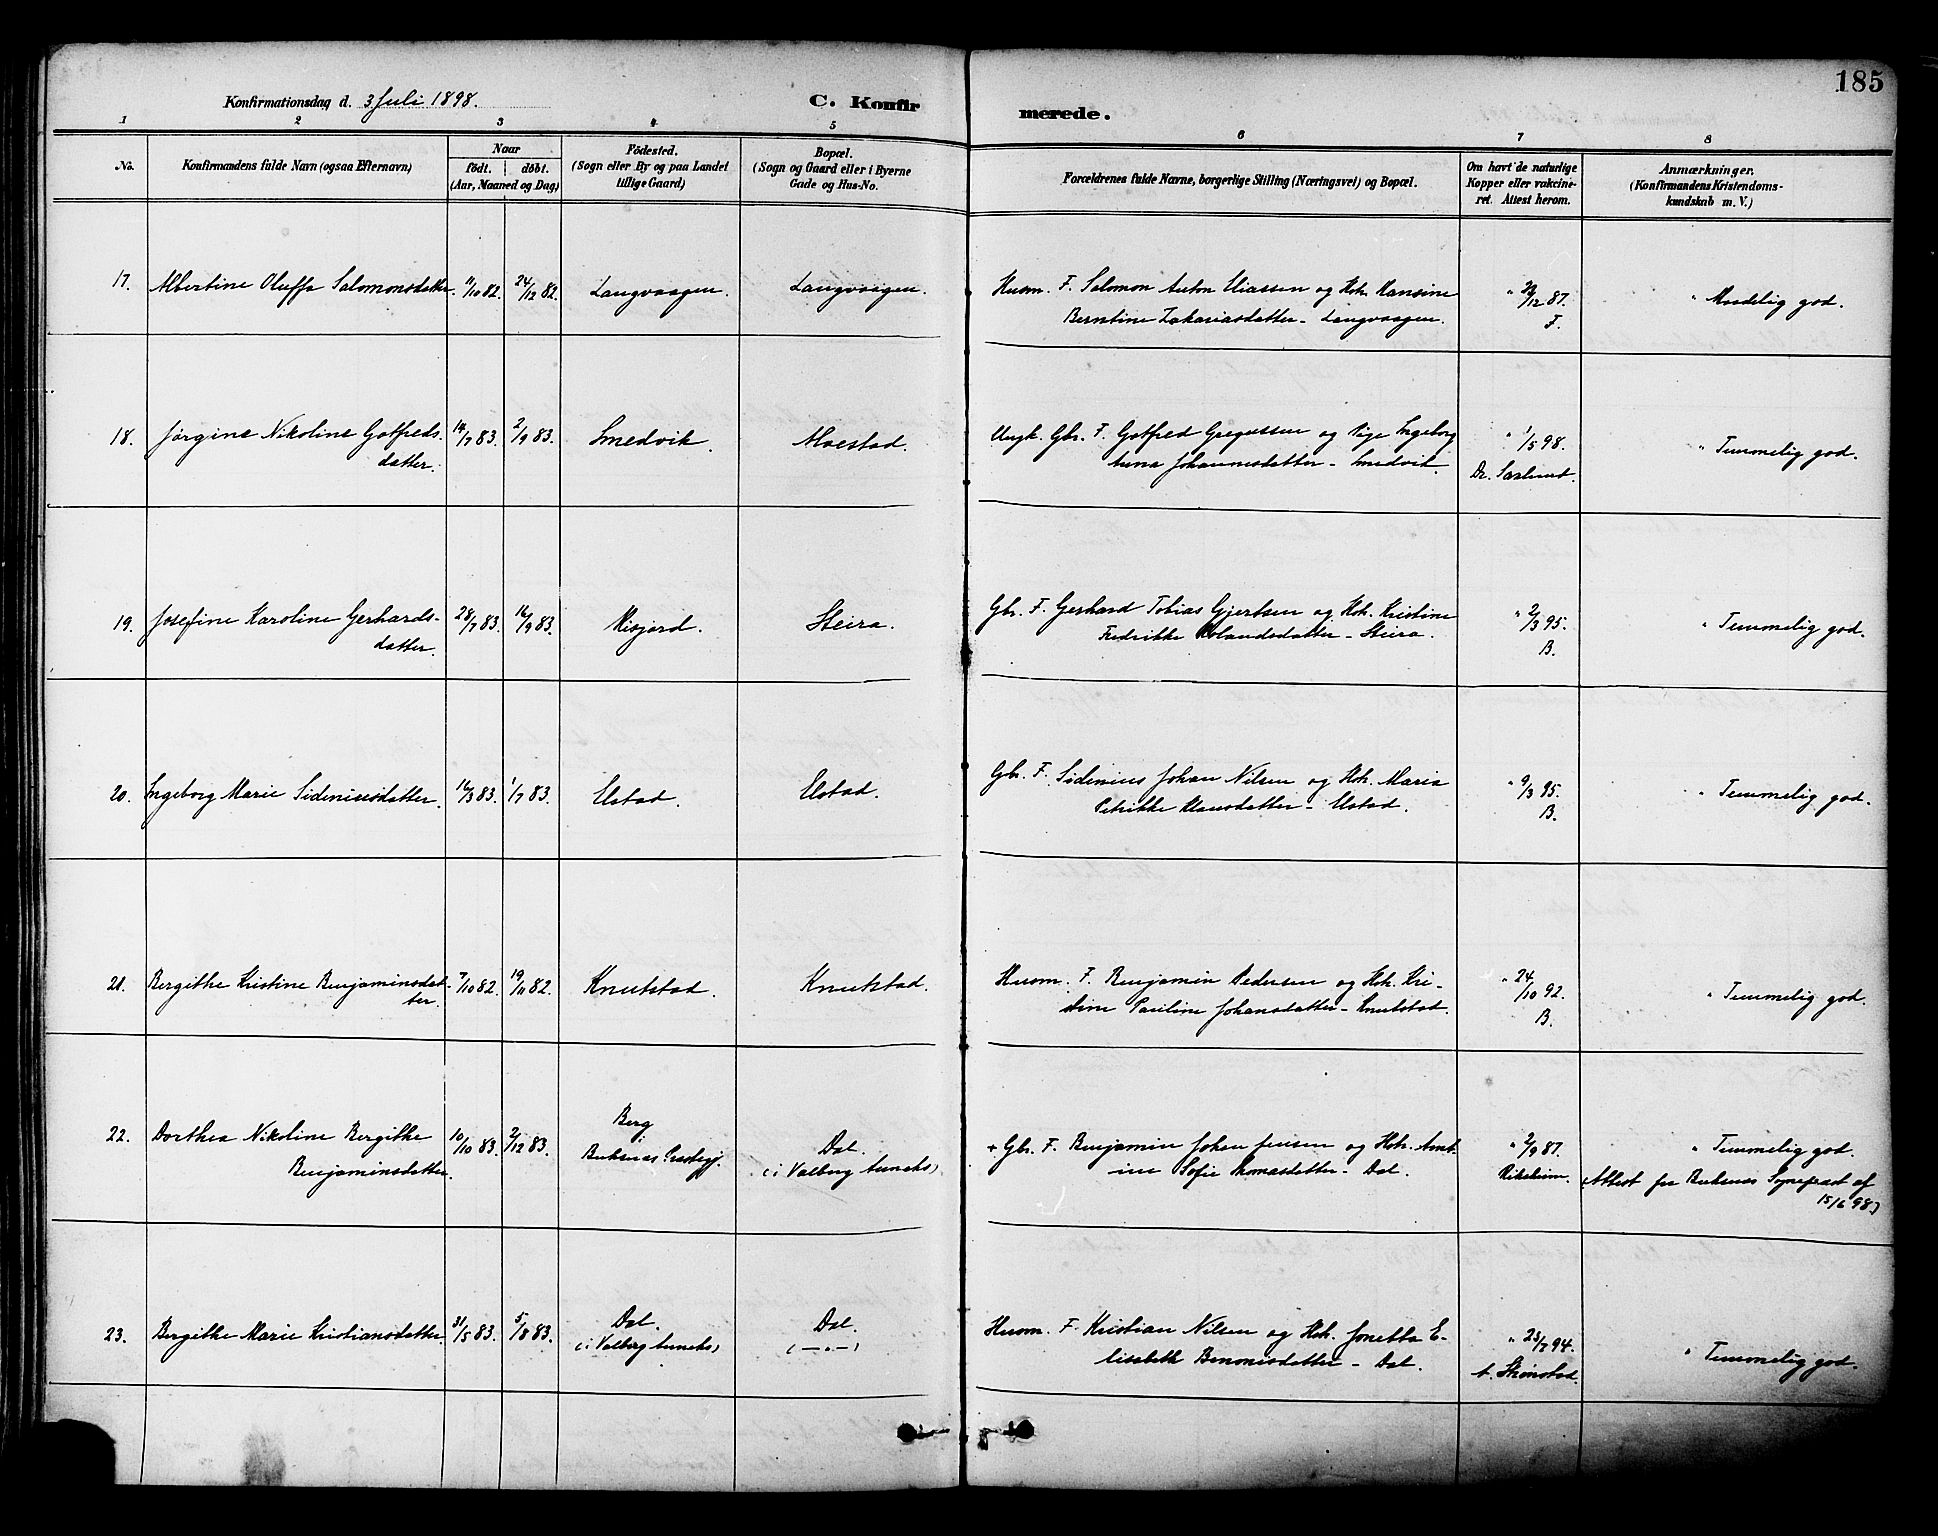 185
Konfirmationsdag d. 3 Juli 1898. C. Konfirmerede.
1 2 3 4 5 6 7 8
No. Konfirmandens fulde Navn (ogsaa Efternavn) Naar født. døbt. (Aar, Maaned og Dag) Fødested. (Sogn eller By og paa Landet tillige Gaard) Bopæl. (Sogn og Gaard eller i Byerne Gade og Hus-No. Forældrenes fulde Navne, borgerlige Stilling (Næringsvei) og Bopæl. Om havt de naturlige Kopper eller vakcineret. Attest herom. Anmærkninger. (Konfirmandens Kristendomskundskab m. V.)
17. Albertine Oluffa Salomonsdatter. 11/10 82. 24/12 82. Langvaagen. Langvaagen. Husm. F. Salomon Anton Eliassen og Hst. Hansine
Berntine Zakariasdatter - Langvaagen. " 30/12 87. F. " Maadelig god.
18. Jørgine Nikoline Gotfreds-
datter. 14/7 83. 2/9 83. Smedvik. Moestad. Ungk. Gbr. F. Gotfred Gregussen og Pige Ingeborg
Anna Johannesdatter - Smedvik. " 1/5 98.
Dr. " Temmelig god.
19. Josefine Karoline Gerhards-
datter. 28/7 83. 16/9 83. Misjord. Steira. Gbr. F. Gerhard Tobias Gjertsen og Hst. Kristine
Fredrikke Rolandsdatter - Steira. " 2/3 95.
B. " Temmelig god.
20. Ingeborg Marie Sideniusdatter. 16/3 83. 1/7 83. Ustad. Ustad. Gbr. F. Sidenius Johan Nilsen og Hst. Maria
Petrikke Klausdatter - Ustad. " 9/3 95.
B. " Temmelig god.
21. Bergithe Kristine Benjaminsdat-
ter. 7/10 82. 19/11 82. Knutstad. Knutstad. Husm. F. Benjamin Pedersen og Hst. Kri-
stine Pauline Johansdatter - Knutstad. " 24/10 92.
B. " Temmelig god.
22. Dorthea Nikoline Bergithe
Benjaminsdatter. 10/10 83. 2/12 83. Berg
Buksnæs Præstegj. Dal.
(i Valberg Anneks) + Gbr. F. Benjamin Johan Jensen og Hst. Ant-
ine Sofie Tomasdatter - Dal. " 2/9 87. " Temmelig god.
(Attest fra Buksnæs Sognepræst af
15/6 98.)
23. Bergithe Marie Kristiansdatter. 31/5 83. 5/8 83. Dal.
(i Valberg Anneks) Dal.
(—"—) Husm. F. Kristian Nilsen og Hst. Jonetta E-
lisabeth Benonisdatter - Dal. " 23/7 94.
A. Skønstad. " Temmelig god.